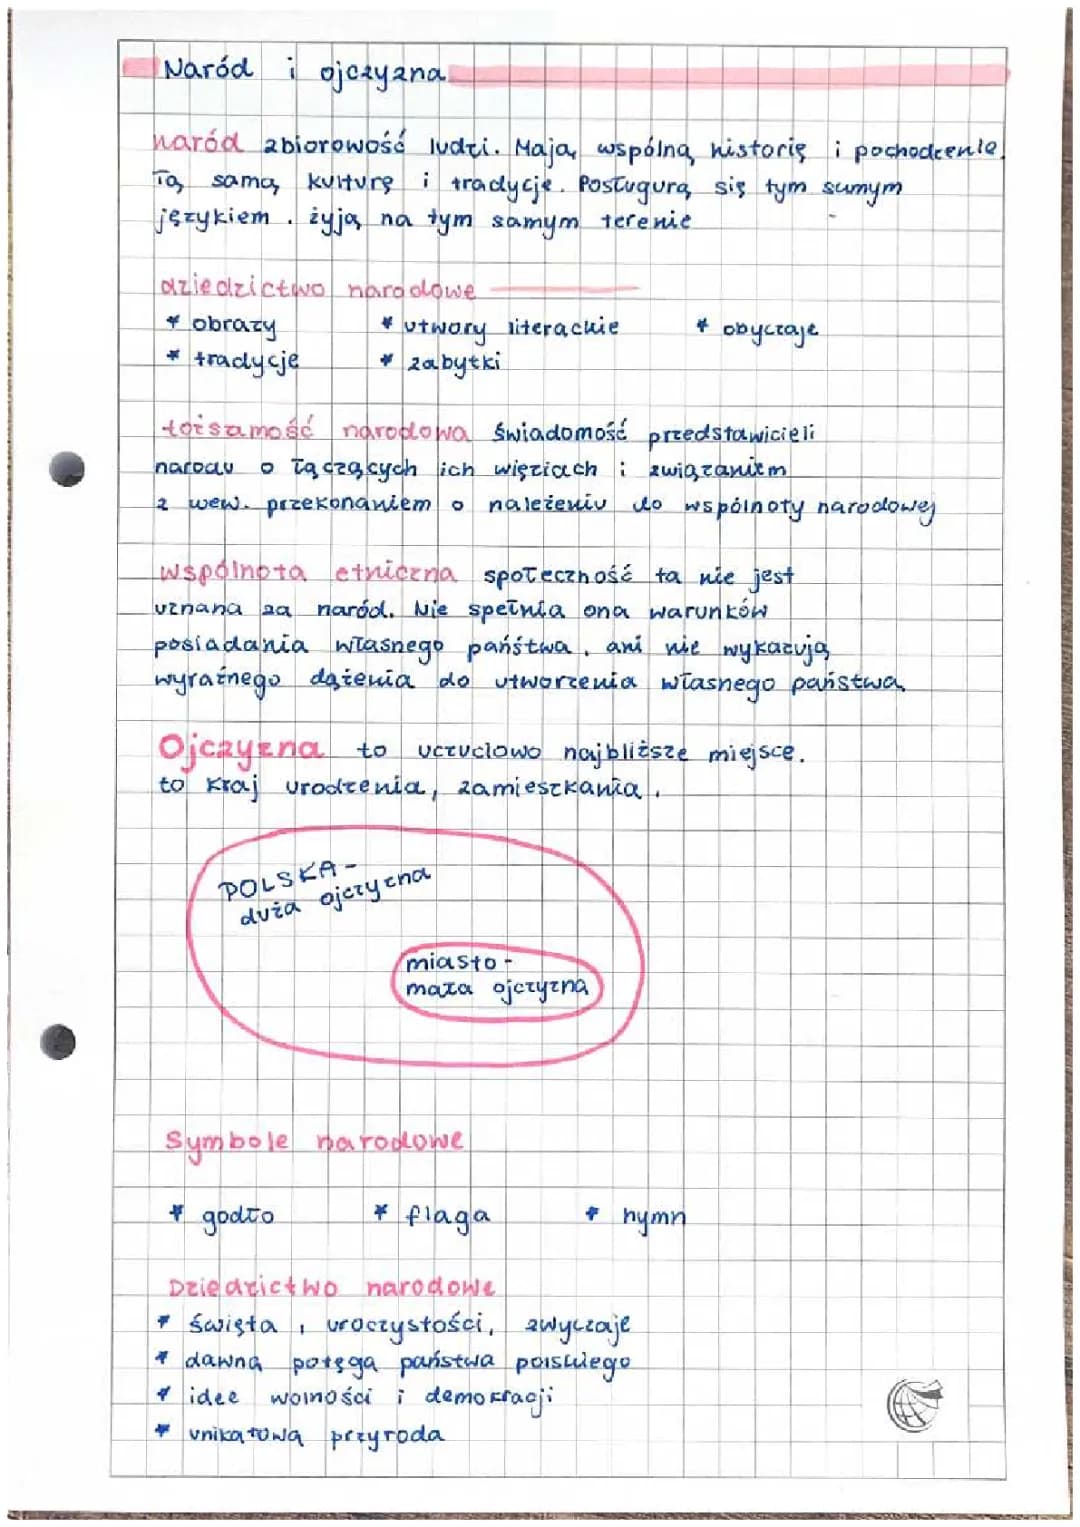 Naród i ojczyzna
naród zbiorowość ludzi. Mają wspólną historię i pochodzenie.
Tą samą kulturę i tradycje. Posługują się tym samym
językiem. żyją na tym samym terenie
dziedzictwo narodowe
* obrazy * utwory literackie * obyczaje
* tradycje * zabytki
tożsamość narodowa świadomość przedstawicieli
narodu o łączących ich więziach i związaniem
z wew. przekonaniem o należeniu do wspólnoty narodowej
wspólnota etniczna społeczność ta nie jest
uznana za naród. Nie spełnia ona warunków
posiadania własnego państwa, ani nie wykazują
wyraźnego dążenia do utworzenia własnego państwa.
Ojczyzna to uczuciowo najbliższe miejsce.
to kraj urodzenia, zamieszkania.
POLSKA -
duża ojczyzna
miasto -
mała ojczyzna
Symbole narodowe
* godło * flaga * hymn
Dziedzictwo narodowe
* święta, uroczystości, zwyczaje
* dawna potęga państwa polskiego
* idee wolności i demokracji
* unikatowa przyroda